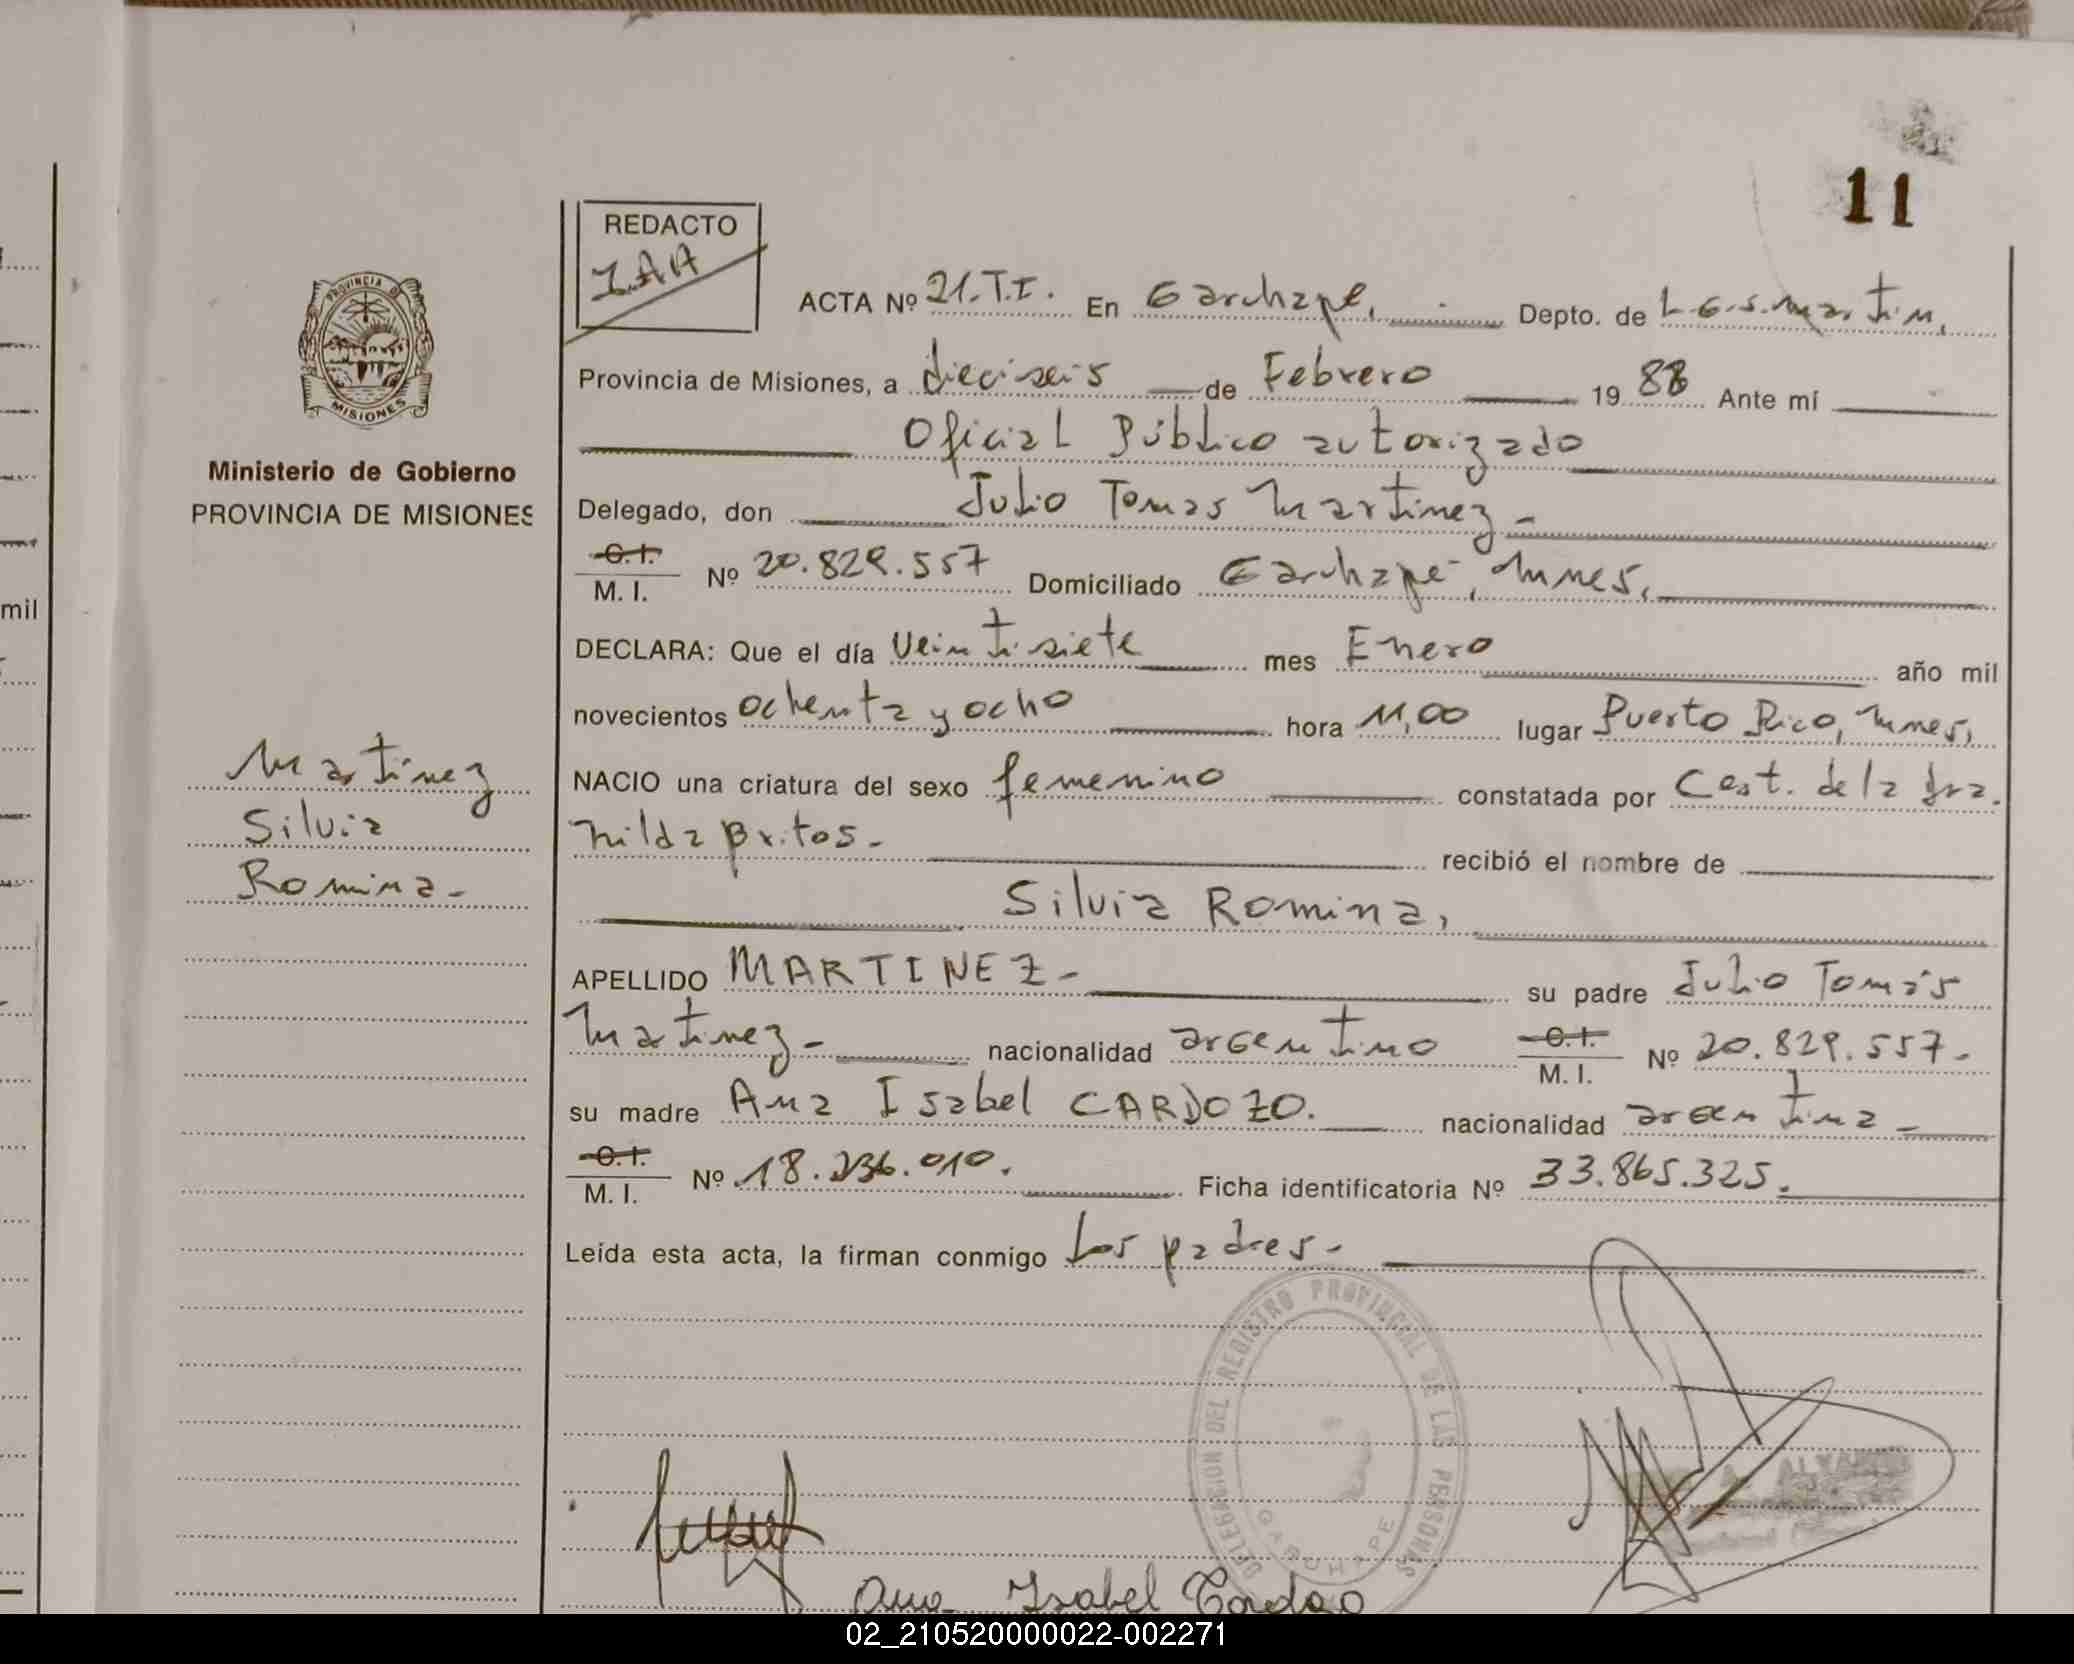 11
REDACTO
I.A.A
ACTA Nº 21.T.I. En Garuhape, Depto. de L.G.S.Martin,
Provincia de Misiones, a dieciseis de Febrero 1988 Ante mí
Oficial Público autorizado
Delegado, don Julio Tomas Martinez -
C.I.
M. I. Nº 20.829.557 Domiciliado Garuhape, Mnes,
DECLARA: Que el día veintisiete mes Enero año mil
novecientos ochenta y ocho hora 11,00 lugar Puerto Rico, Mnes,
NACIO una criatura del sexo femenino constatada por Cert. de la dra.
Nilda Britos. recibió el nombre de
Silvia Romina,
APELLIDO MARTINEZ - su padre Julio Tomás
Martinez - nacionalidad argentino C.I. M. I. Nº 20.829.557.
su madre Ana Isabel CARDOZO. nacionalidad argentina
C.I.
M. I. Nº 18.236.010. Ficha identificatoria Nº 33.865.325.
Leída esta acta, la firman conmigo los padres -
PROVINCIA DE
MISIONES
Ministerio de Gobierno
PROVINCIA DE MISIONES
Martinez
Silvia
Romina -
mil
DELEGACION DEL REGISTRO PROVINCIAL DE LAS PERSONAS
GARUHAPE
Ana Isabel Cardozo
02_210520000022-002271